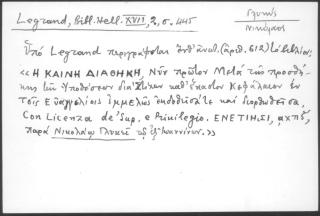 Legrand, Bibl. Hell. XVII, 2, σ. 445
Γλυκύς
Νικόλαος
Ὑπὸ Legrand περιγράφεται ὑπ' ἀριθ. (ἀριθ. 612) τὸ βιβλίον:
«Η ΚΑΙΝΗ ΔΙΑΘΗΚΗ, Νῦν πρῶτον Μετὰ τῆς προσθή-
κης τῶν Ὑποθέσεων διὰ Στίχων καθ' ἕκαστον Κεφάλαιον ἐν
Τοῖς Εὐαγγελίοις Ἐμμελῶς ἐκδοθεῖσά τε καὶ διορθωθεῖσα.
Con Licenza de' Sup. e Privilegio. ΕΝΕΤΙΗΣΙ, αχπϛ,
παρὰ Νικολάῳ Γλυκεῖ τῷ ἐξ Ἰωαννίνων.»